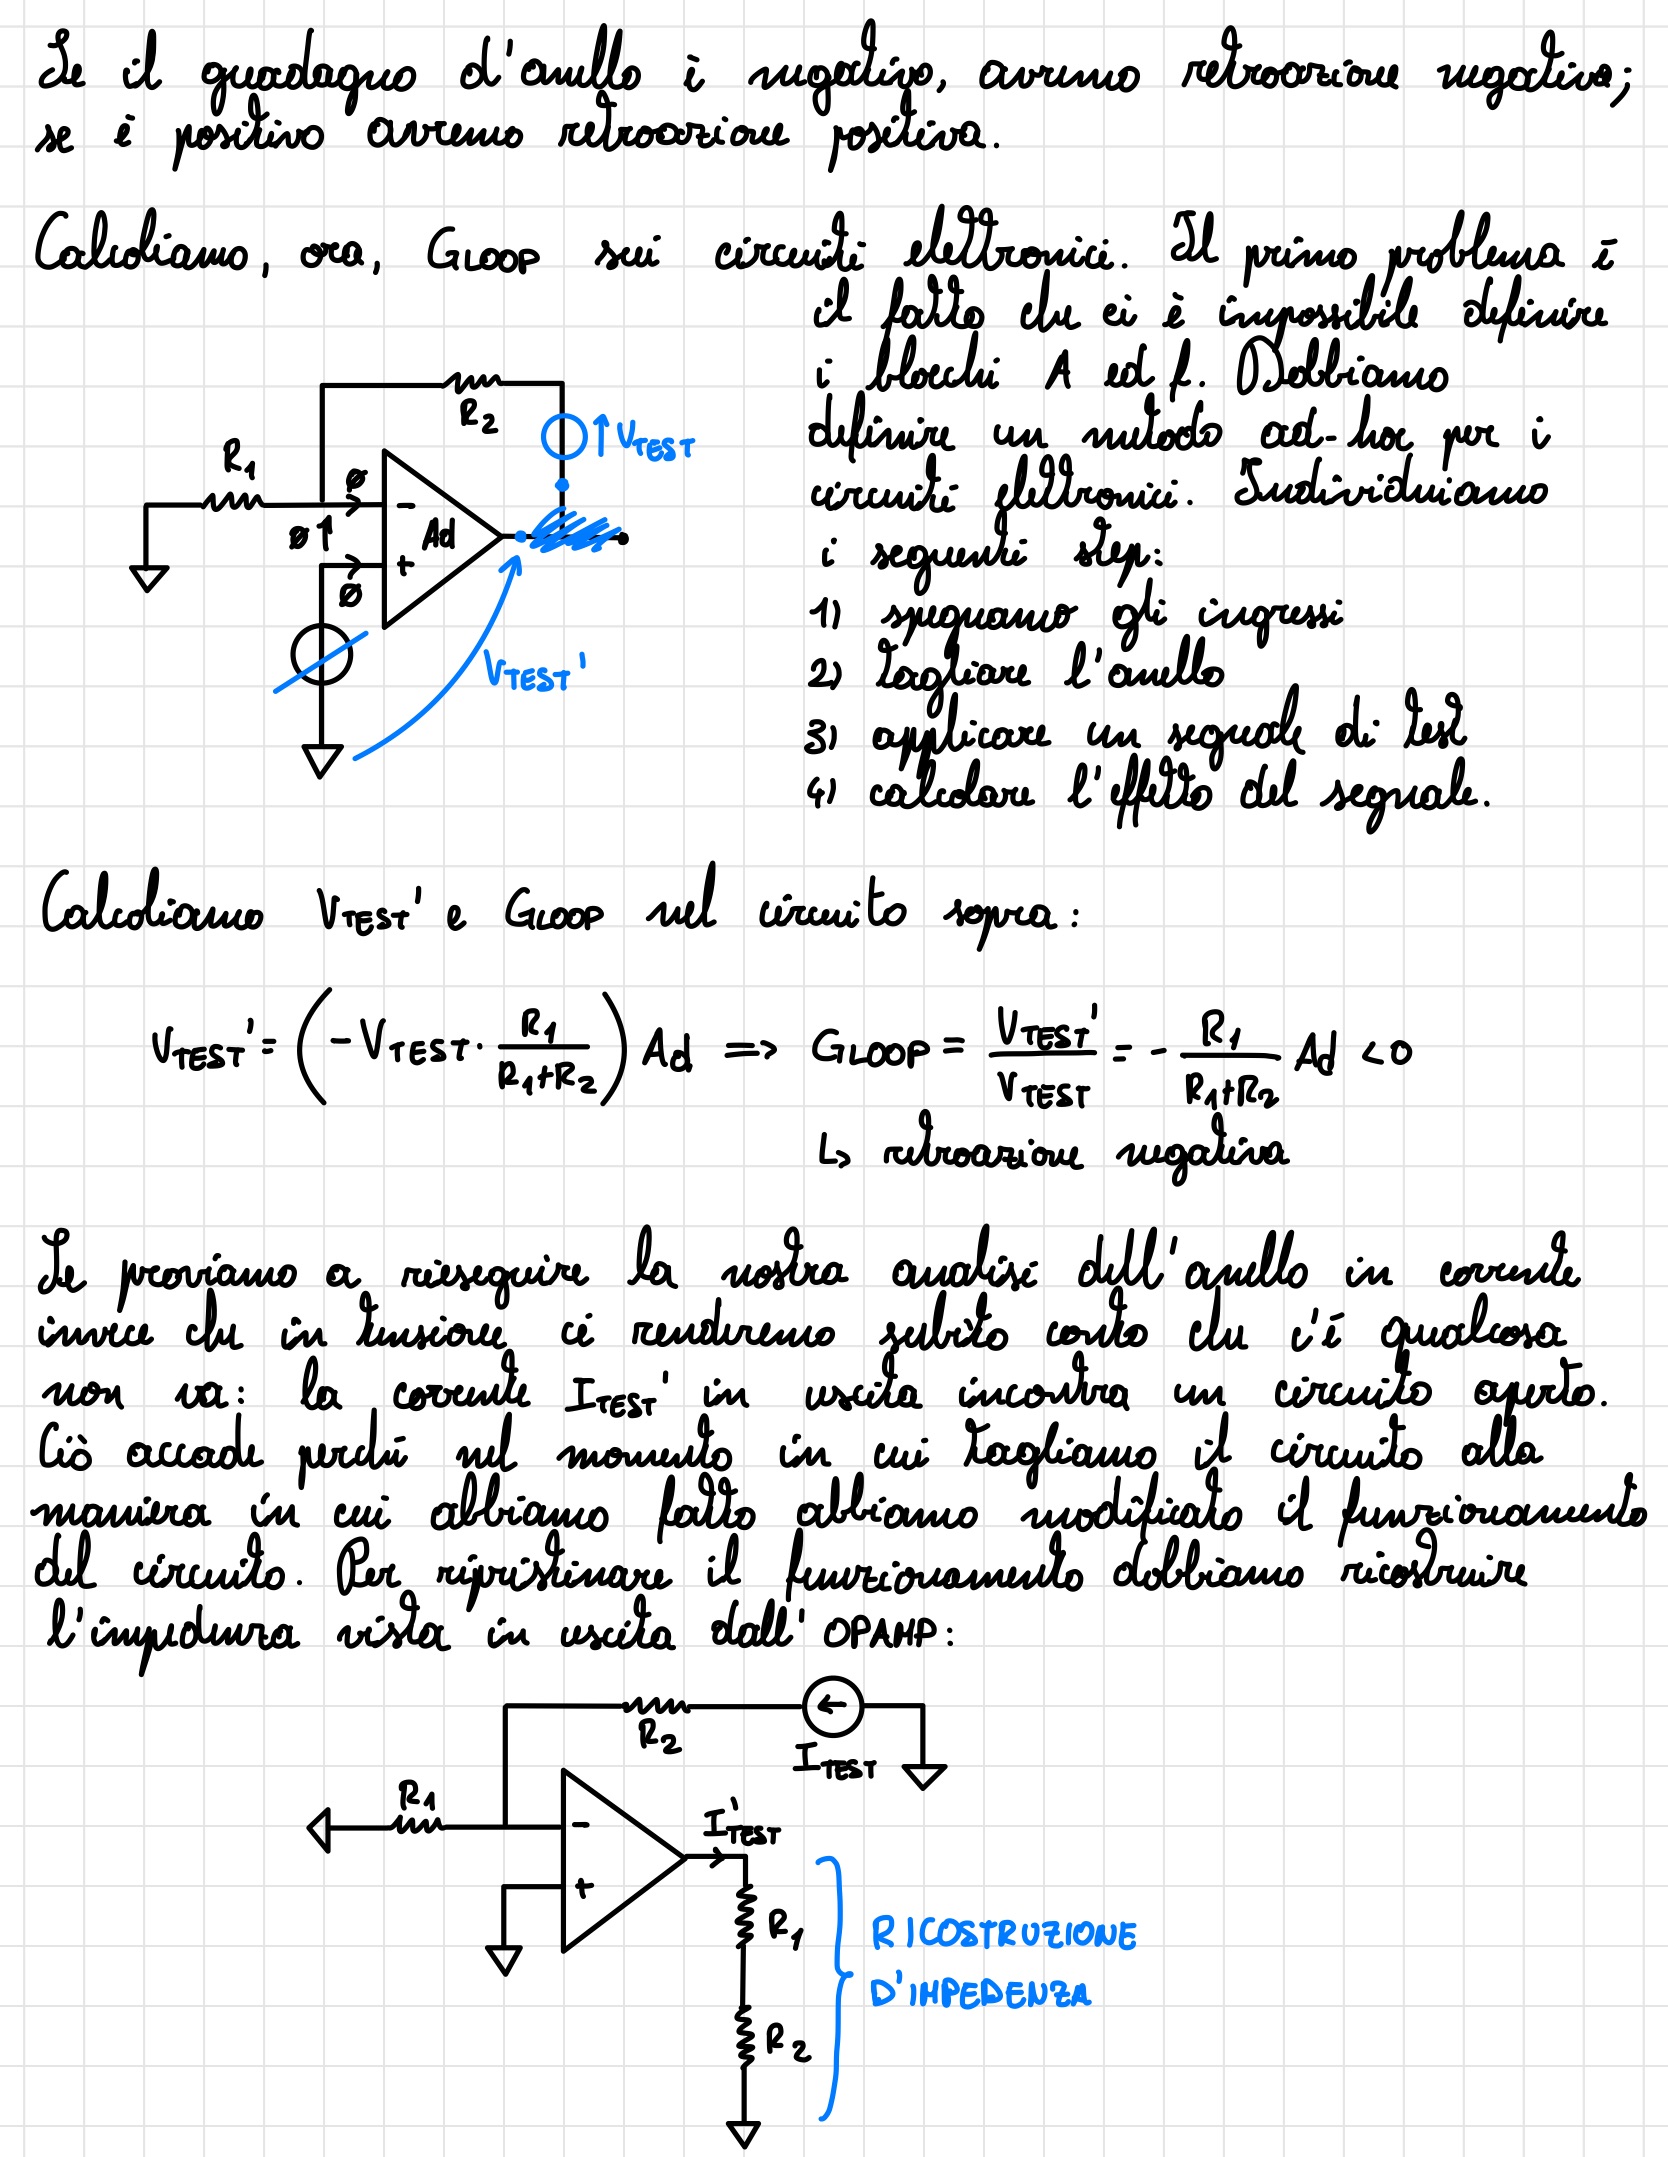 Se il guadagno d'anello è negativo, avremo retroazione negativa;
se è positivo avremo retroazione positiva.
Calcoliamo, ora, GLOOP sui circuiti elettronici. Il primo problema è
il fatto che ci è impossibile definire
i blocchi A ed f. Dobbiamo
definire un metodo ad-hoc per i
circuiti elettronici. Individuiamo
i seguenti step:
1) spegnamo gli ingressi
2) tagliare l'anello
3) applicare un segnale di test
4) calcolare l'effetto del segnale.
R2
VTEST
R1
Ø
-
Ø
Ad
+
Ø
VTEST'
Calcoliamo VTEST' e GLOOP nel circuito sopra:
VTEST' = (-VTEST · R1/(R1+R2)) Ad => GLOOP = VTEST'/VTEST = - R1/(R1+R2) Ad < 0
↳ retroazione negativa
Se proviamo a rieseguire la nostra analisi dell'anello in corrente
invece che in tensione ci renderemo subito conto che c'è qualcosa
non va: la corrente ITEST' in uscita incontra un circuito aperto.
Ciò accade perché nel momento in cui tagliamo il circuito alla
maniera in cui abbiamo fatto abbiamo modificato il funzionamento
del circuito. Per ripristinare il funzionamento dobbiamo ricostruire
l'impedenza vista in uscita dall' OPAMP:
R2
ITEST
R1
-
I'TEST
+
R1
RICOSTRUZIONE
D'IMPEDENZA
R2